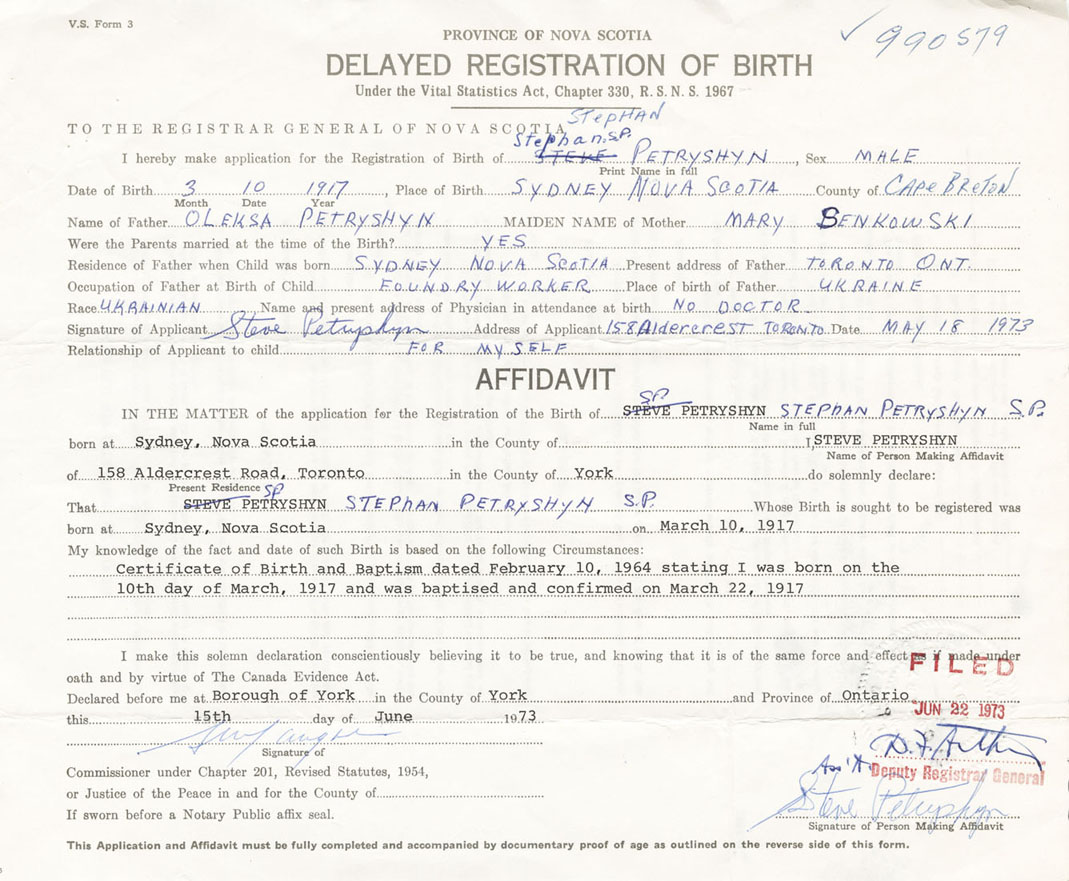 V.S. Form 3
✓ 990579
PROVINCE OF NOVA SCOTIA
DELAYED REGISTRATION OF BIRTH
Under the Vital Statistics Act, Chapter 330, R.S.N.S. 1967
StepHAN
TO THE REGISTRAR GENERAL OF NOVA SCOTIA
Stephan S.P.
I hereby make application for the Registration of Birth of STEVE PETRYSHYN, Sex MALE
Print Name in full
Date of Birth 3 10 1917, Place of Birth SYDNEY NOVA SCOTIA County of CAPE BRETON
Month Date Year
Name of Father OLEKSA PETRYSHYN MAIDEN NAME of Mother MARY BENKOWSKI
Were the Parents married at the time of the Birth? YES
Residence of Father when Child was born SYDNEY NOVA SCOTIA Present address of Father TORONTO ONT.
Occupation of Father at Birth of Child FOUNDRY WORKER Place of birth of Father UKRAINE
Race UKRAINIAN Name and present address of Physician in attendance at birth NO DOCTOR
Signature of Applicant Steve Petryshyn Address of Applicant 158 Aldercrest TORONTO Date MAY 18 1973
Relationship of Applicant to child FOR MY SELF
AFFIDAVIT
SP
IN THE MATTER of the application for the Registration of the Birth of STEVE PETRYSHYN STEPHAN PETRYSHYN S.P.
Name in full
born at Sydney, Nova Scotia in the County of I, STEVE PETRYSHYN
Name of Person Making Affidavit
of 158 Aldercrest Road, Toronto in the County of York do solemnly declare:
Present Residence SP
That STEVE PETRYSHYN STEPHAN PETRYSHYN S.P. Whose Birth is sought to be registered was
born at Sydney, Nova Scotia on March 10, 1917
My knowledge of the fact and date of such Birth is based on the following Circumstances:
Certificate of Birth and Baptism dated February 10, 1964 stating I was born on the
10th day of March, 1917 and was baptised and confirmed on March 22, 1917
I make this solemn declaration conscientiously believing it to be true, and knowing that it is of the same force and effect as if made under
FILED
oath and by virtue of The Canada Evidence Act.
Declared before me at Borough of York in the County of York and Province of Ontario
this 15th day of June 1973
JUN 22 1973
Signature of
Commissioner under Chapter 201, Revised Statutes, 1954,
Ass't Deputy Registrar General
or Justice of the Peace in and for the County of
Steve Petryshyn
If sworn before a Notary Public affix seal.
Signature of Person Making Affidavit
This Application and Affidavit must be fully completed and accompanied by documentary proof of age as outlined on the reverse side of this form.